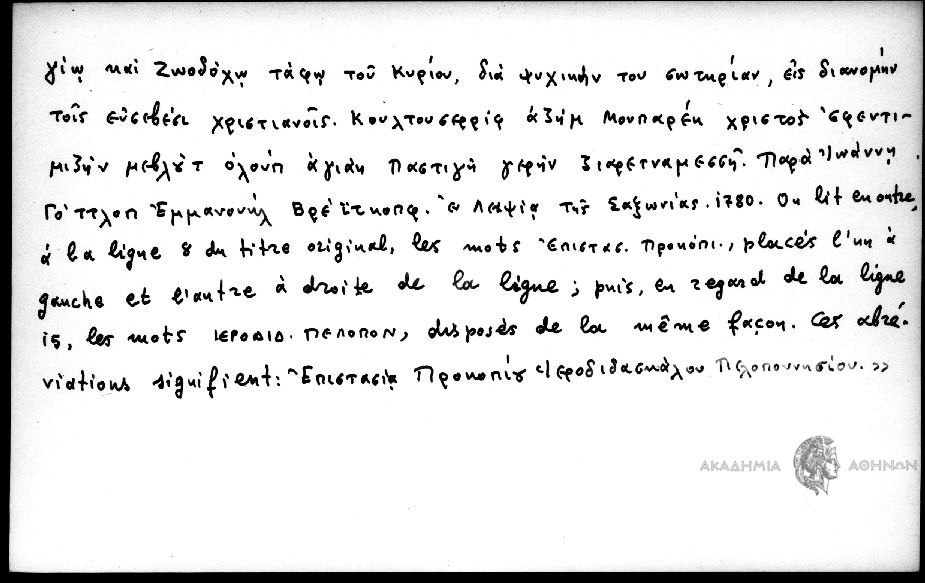 γίῳ καὶ Ζωοδόχῳ τάφῳ τοῦ Κυρίου, διὰ ψυχικήν του σωτηρίαν, εἰς διανομὴν
τοῖς εὐσεβέσι χριστιανοῖς. Κουλτουσερρὶφ ἀζὴμ Μουπαρέκ χριστὸς ἐφεντι-
μιζὴν μεβλὺτ ὀλοὺπ ἀγιὰν παστιγὴ γερὴν ζιαρετναμεσσῆ. Παρὰ Ἰωάννῃ
Γόττλοπ Ἐμμανουὴλ Βρέϊτκοπφ. ἐν Λειψίᾳ τῆς Σαξωνίας. 1780. On lit en outre,
à la ligne 8 du titre original, les mots Ἐπιστασ. Προκόπι., placés l'un à
gauche et l'autre à droite de la ligne; puis, en regard de la ligne
15, les mots ΙΕΡΟΔΙΔ. ΠΕΛΟΠΟΝ, disposés de la même façon. Ces abré-
viations signifient: Ἐπιστασίᾳ Προκοπίου Ἱεροδιδασκάλου Πελοποννησίου.»
ΑΚΑΔΗΜΙΑ ΑΘΗΝΩΝ